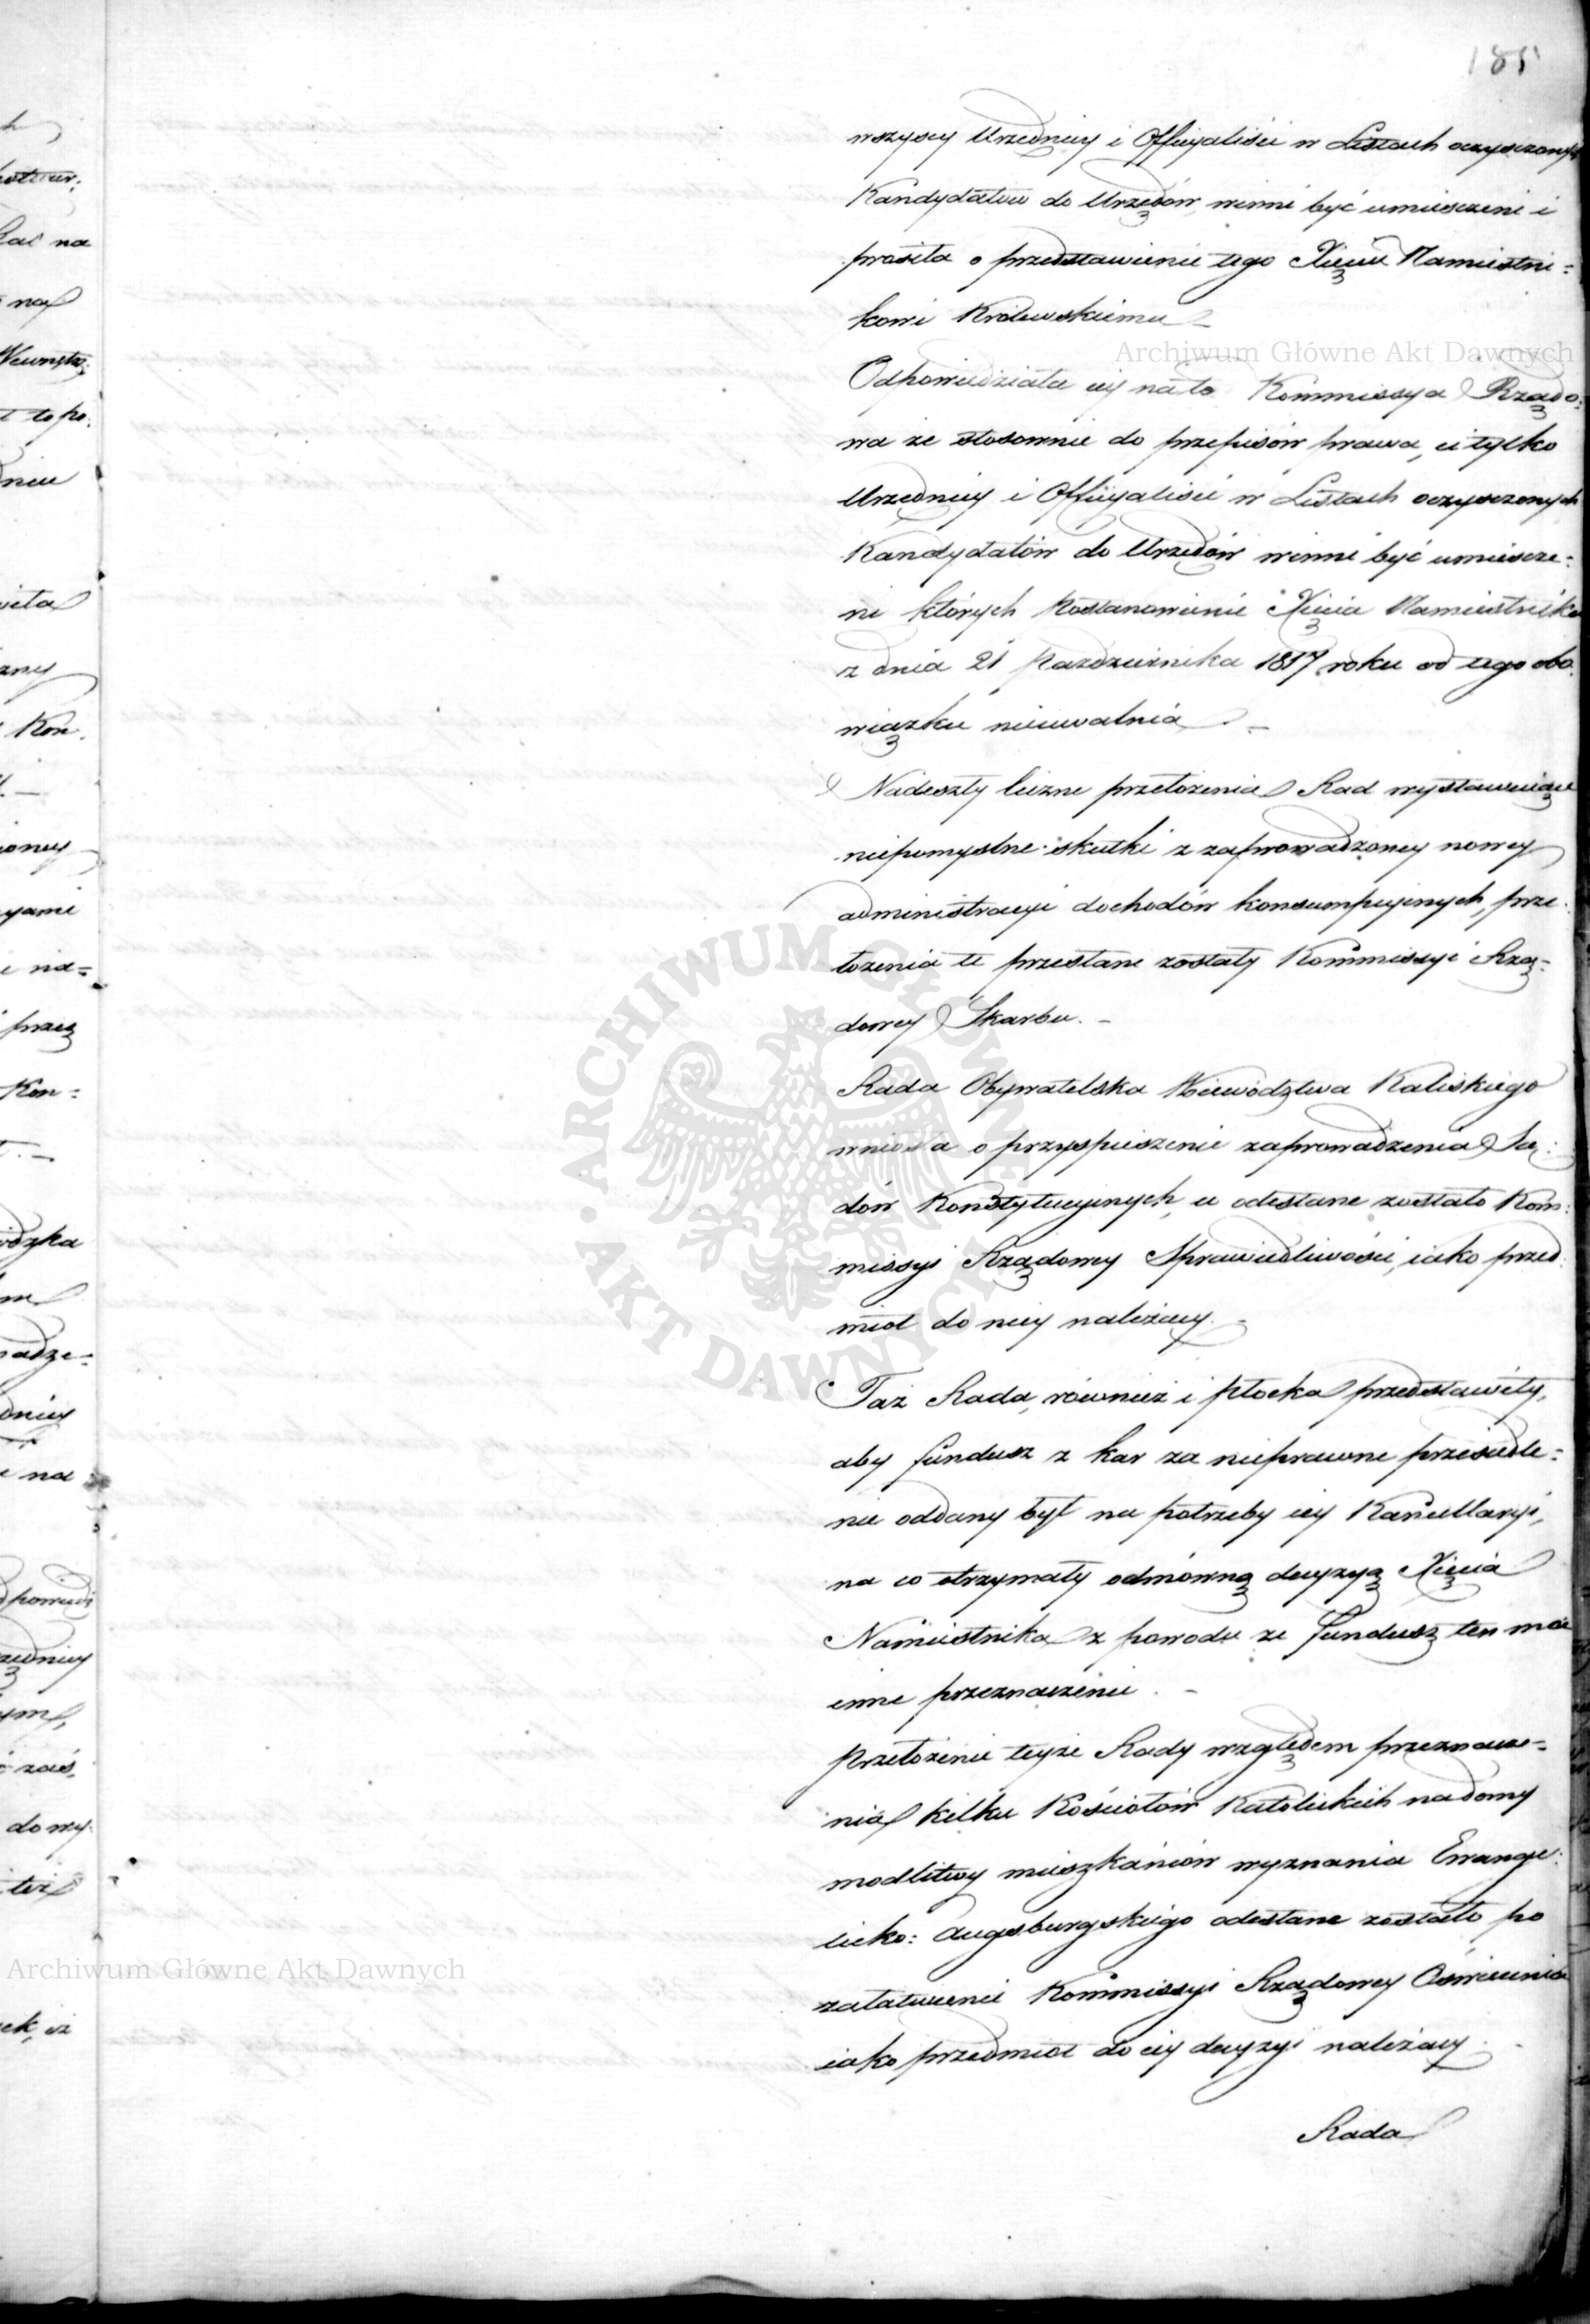 185
wszyscy Urzędnicy i Officyaliści w Listach oczysczonych
Kandydatów do Urzędów, winni być umiesczeni i
prosiła o przedstawienie tego Xięciu Namiestni=
kowi Królewskiemu
Archiwum Główne Akt Dawnych
Odpowiedziała iey na to Kommissya Rządo:
wa że stosownie do przepisów prawa, ci tylko
Urzędnicy i Officyaliści w Listach oczysczonych
Kandydatów do Urzędów winni być umiescze=
ni których Postanowienie Xięcia Namiestnika
z dnia 21 Pazdziernika 1817 roku od tego obo.
wiązku nieuwalnia
Nadeszły liczne przełożenia Rad wystawuiące
niepomyslne skutki z zaprowadzoney nowey
administracyi dochodów konsumpcyinych, prze.
łożenia te przesłane zostały Kommissyi Rzą=
dowey Skarbu. —
Rada Obywatelska Woiewództwa Kaliskiego
wniosła o przyspieszenie zaprowadzenia Są:
dów Konstytucyinych, co odesłane zostało Kom:
missyi Rządowey Sprawiedliwości, iako przed.
miot do niey należący. —
Taż Rada, również i Płocka przedstawiły,
aby fundusz z kar za nieprawne przesiedle=
nie oddany był na potrzeby iey Kancellaryi,
na co otrzymały odmówną decyzyą Xięcia
Namiestnika z powodu że fundusz ten ma
inne przeznaczenie. —
Przełożenie teyże Rady względem przeznacze=
nia kilku Kościołów Katolickich na domy
modlitwy mieszkańców wyznania Ewange:
licko: Augsburgskiego odesłane zostało po
załatwienie Kommissyi Rządowey Oświecenia
iako przedmiot do iey decyzyi należący.
Rada
ARCHIWUM GŁÓWNE AKT DAWNYCH
Archiwum Główne Akt Dawnych